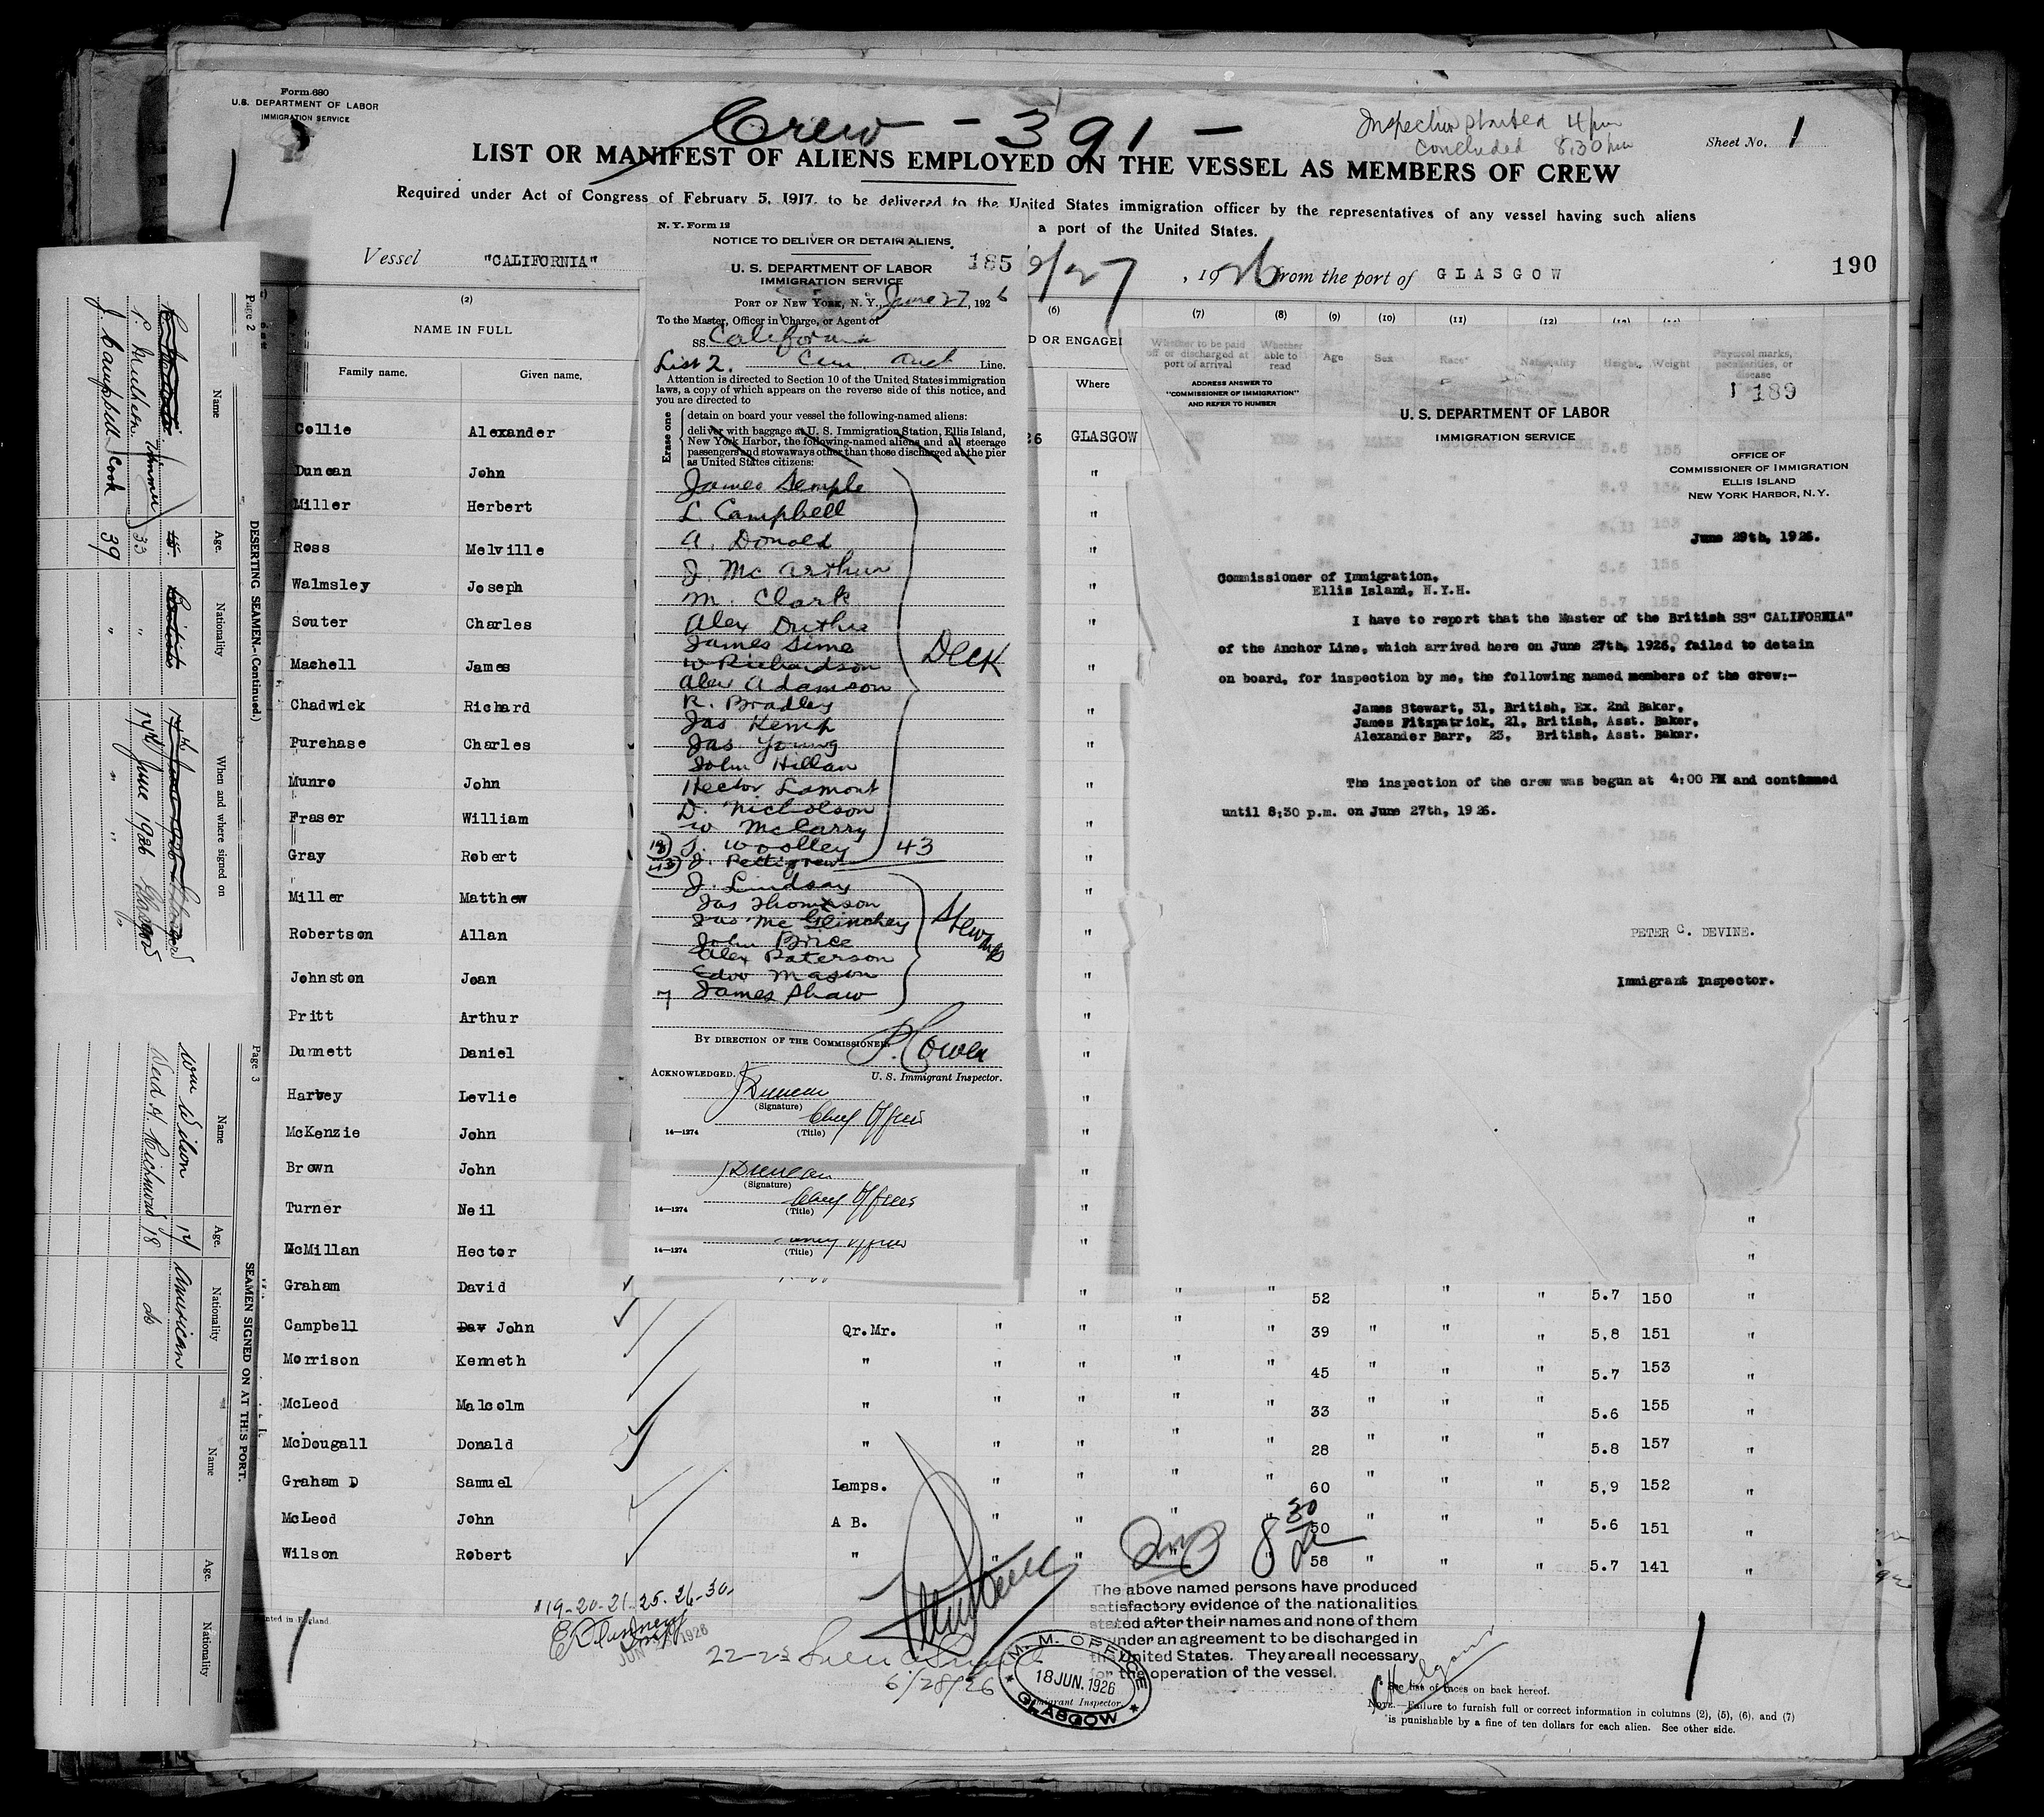 Form 680
U.S. DEPARTMENT OF LABOR
IMMIGRATION SERVICE
Crew - 391 -
Inspection started 4 pm
concluded 8.30 pm
Sheet No. 1
LIST OR MANIFEST OF ALIENS EMPLOYED ON THE VESSEL AS MEMBERS OF CREW
Required under Act of Congress of February 5, 1917, to be delivered to the United States immigration officer by the representatives of any vessel having such aliens
a port of the United States.
Vessel "CALIFORNIA"
/27, 1926 from the port of GLASGOW
190
(2)
NAME IN FULL
Family name. Given name.
Collie Alexander
Duncan John
Miller Herbert
Ross Melville
Walmsley Joseph
Souter Charles
Machell James
Chadwick Richard
Purchase Charles
Munro John
Fraser William
Gray Robert
Miller Matthew
Robertson Allan
Johnston Jean
Pritt Arthur
Dunnett Daniel
Harvey Levlie
McKenzie John
Brown John
Turner Neil
McMillan Hector
Graham David " " " 52 " " 5.7 150 "
Campbell Dav John Qr.Mr. " " " " 39 " " " 5.8 151 "
Morrison Kenneth " " " " " 45 " " " 5.7 153 "
McLeod Malcolm " " " " " 33 " " " 5.6 155 "
McDougall Donald " " " " " 28 " " " 5.8 157 "
Graham D Samuel Lamps. " " " " 60 " " " 5.9 152 "
McLeod John A B. " " " " 50 " " " 5.6 151 "
Wilson Robert " " " " " 58 " " " 5.7 141 "
N. Y. Form 12
NOTICE TO DELIVER OR DETAIN ALIENS.
185
U. S. DEPARTMENT OF LABOR
IMMIGRATION SERVICE
PORT OF NEW YORK, N. Y., June 27, 1926
To the Master, Officer in Charge, or Agent of
SS California
List 2. Line.
Attention is directed to Section 10 of the United States immigration
laws, a copy of which appears on the reverse side of this notice, and
you are directed to
Erase one
detain on board your vessel the following-named aliens:
deliver with baggage at U. S. Immigration Station, Ellis Island,
New York Harbor, the following-named aliens and all steerage
passengers and stowaways other than those discharged at the pier
as United States citizens:
James Semple
L. Campbell
A. Donald
J. McArthur
M. Clark
Alex Duthie
James Sime
W Richardson
Alex Adamson
R. Bradley
Jas Kemp
Jas Young
John Hillan
Hector Lamont
D. Nicholson
W McCarry
J. Woolley
J. Pettigrew
DECK
43
J. Lindsay
Jas Thomson
Jas McGlinchey
John Brice
Alex Paterson
Edw Mason
7 James Shaw
Stewards
BY DIRECTION OF THE COMMISSIONER.
P. Cowen
U. S. Immigrant Inspector.
ACKNOWLEDGED.
J Duncan
(Signature)
Chief Officer
14—1274 (Title)
J Duncan
(Signature)
Chief Officer
14—1274 (Title)
14—1274 (Title)
(6) (7) (8) (9) (10) (11) (12)
D OR ENGAGED
Where
26 GLASGOW
Whether to be paid off or discharged at port of arrival
Whether able to read
Age Sex Race Nationality Height Weight
Physical marks, peculiarities, or disease
ADDRESS ANSWER TO
"COMMISSIONER OF IMMIGRATION"
AND REFER TO NUMBER
189
U. S. DEPARTMENT OF LABOR
IMMIGRATION SERVICE
OFFICE OF
COMMISSIONER OF IMMIGRATION
ELLIS ISLAND
NEW YORK HARBOR, N. Y.
June 29th, 1926.
Commissioner of Immigration,
Ellis Island, N.Y.H.
I have to report that the Master of the British SS" CALIFORNIA"
of the Anchor Line, which arrived here on June 27th, 1926, failed to detain
on board, for inspection by me, the following named members of the crew:-
James Stewart, 31, British, Ex. 2nd Baker,
James Fitzpatrick, 21, British, Asst. Baker,
Alexander Barr, 23, British, Asst. Baker.
The inspection of the crew was begun at 4:00 PM and continued
until 8:30 p.m. on June 27th, 1926.
PETER C. DEVINE.
Immigrant Inspector.
Page 2
DESERTING SEAMEN.—(Continued.)
Name Age. Nationality When and where signed on
P. Mulhern. Trimmer 33 " 14 June 1926 Glasgow
J. Campbell Cook 39 " " "
Page 3
SEAMEN SIGNED ON AT THIS PORT.
Name Age. Nationality Name Age. Nationality
Wm Wilson 14 American
H. Richmond 18 do
19-20-21-25-26-30.
JUN 1926
22-23
6/28/26
8 30
The above named persons have produced
satisfactory evidence of the nationalities
stated after their names and none of them
under an agreement to be discharged in
the United States. They are all necessary
for the operation of the vessel.
M. M. OFFICE
18 JUN. 1926
GLASGOW
Immigrant Inspector.
Printed in England.
* See list of races on back hereof.
NOTE.—Failure to furnish full or correct information in columns (2), (5), (6), and (7)
is punishable by a fine of ten dollars for each alien. See other side.